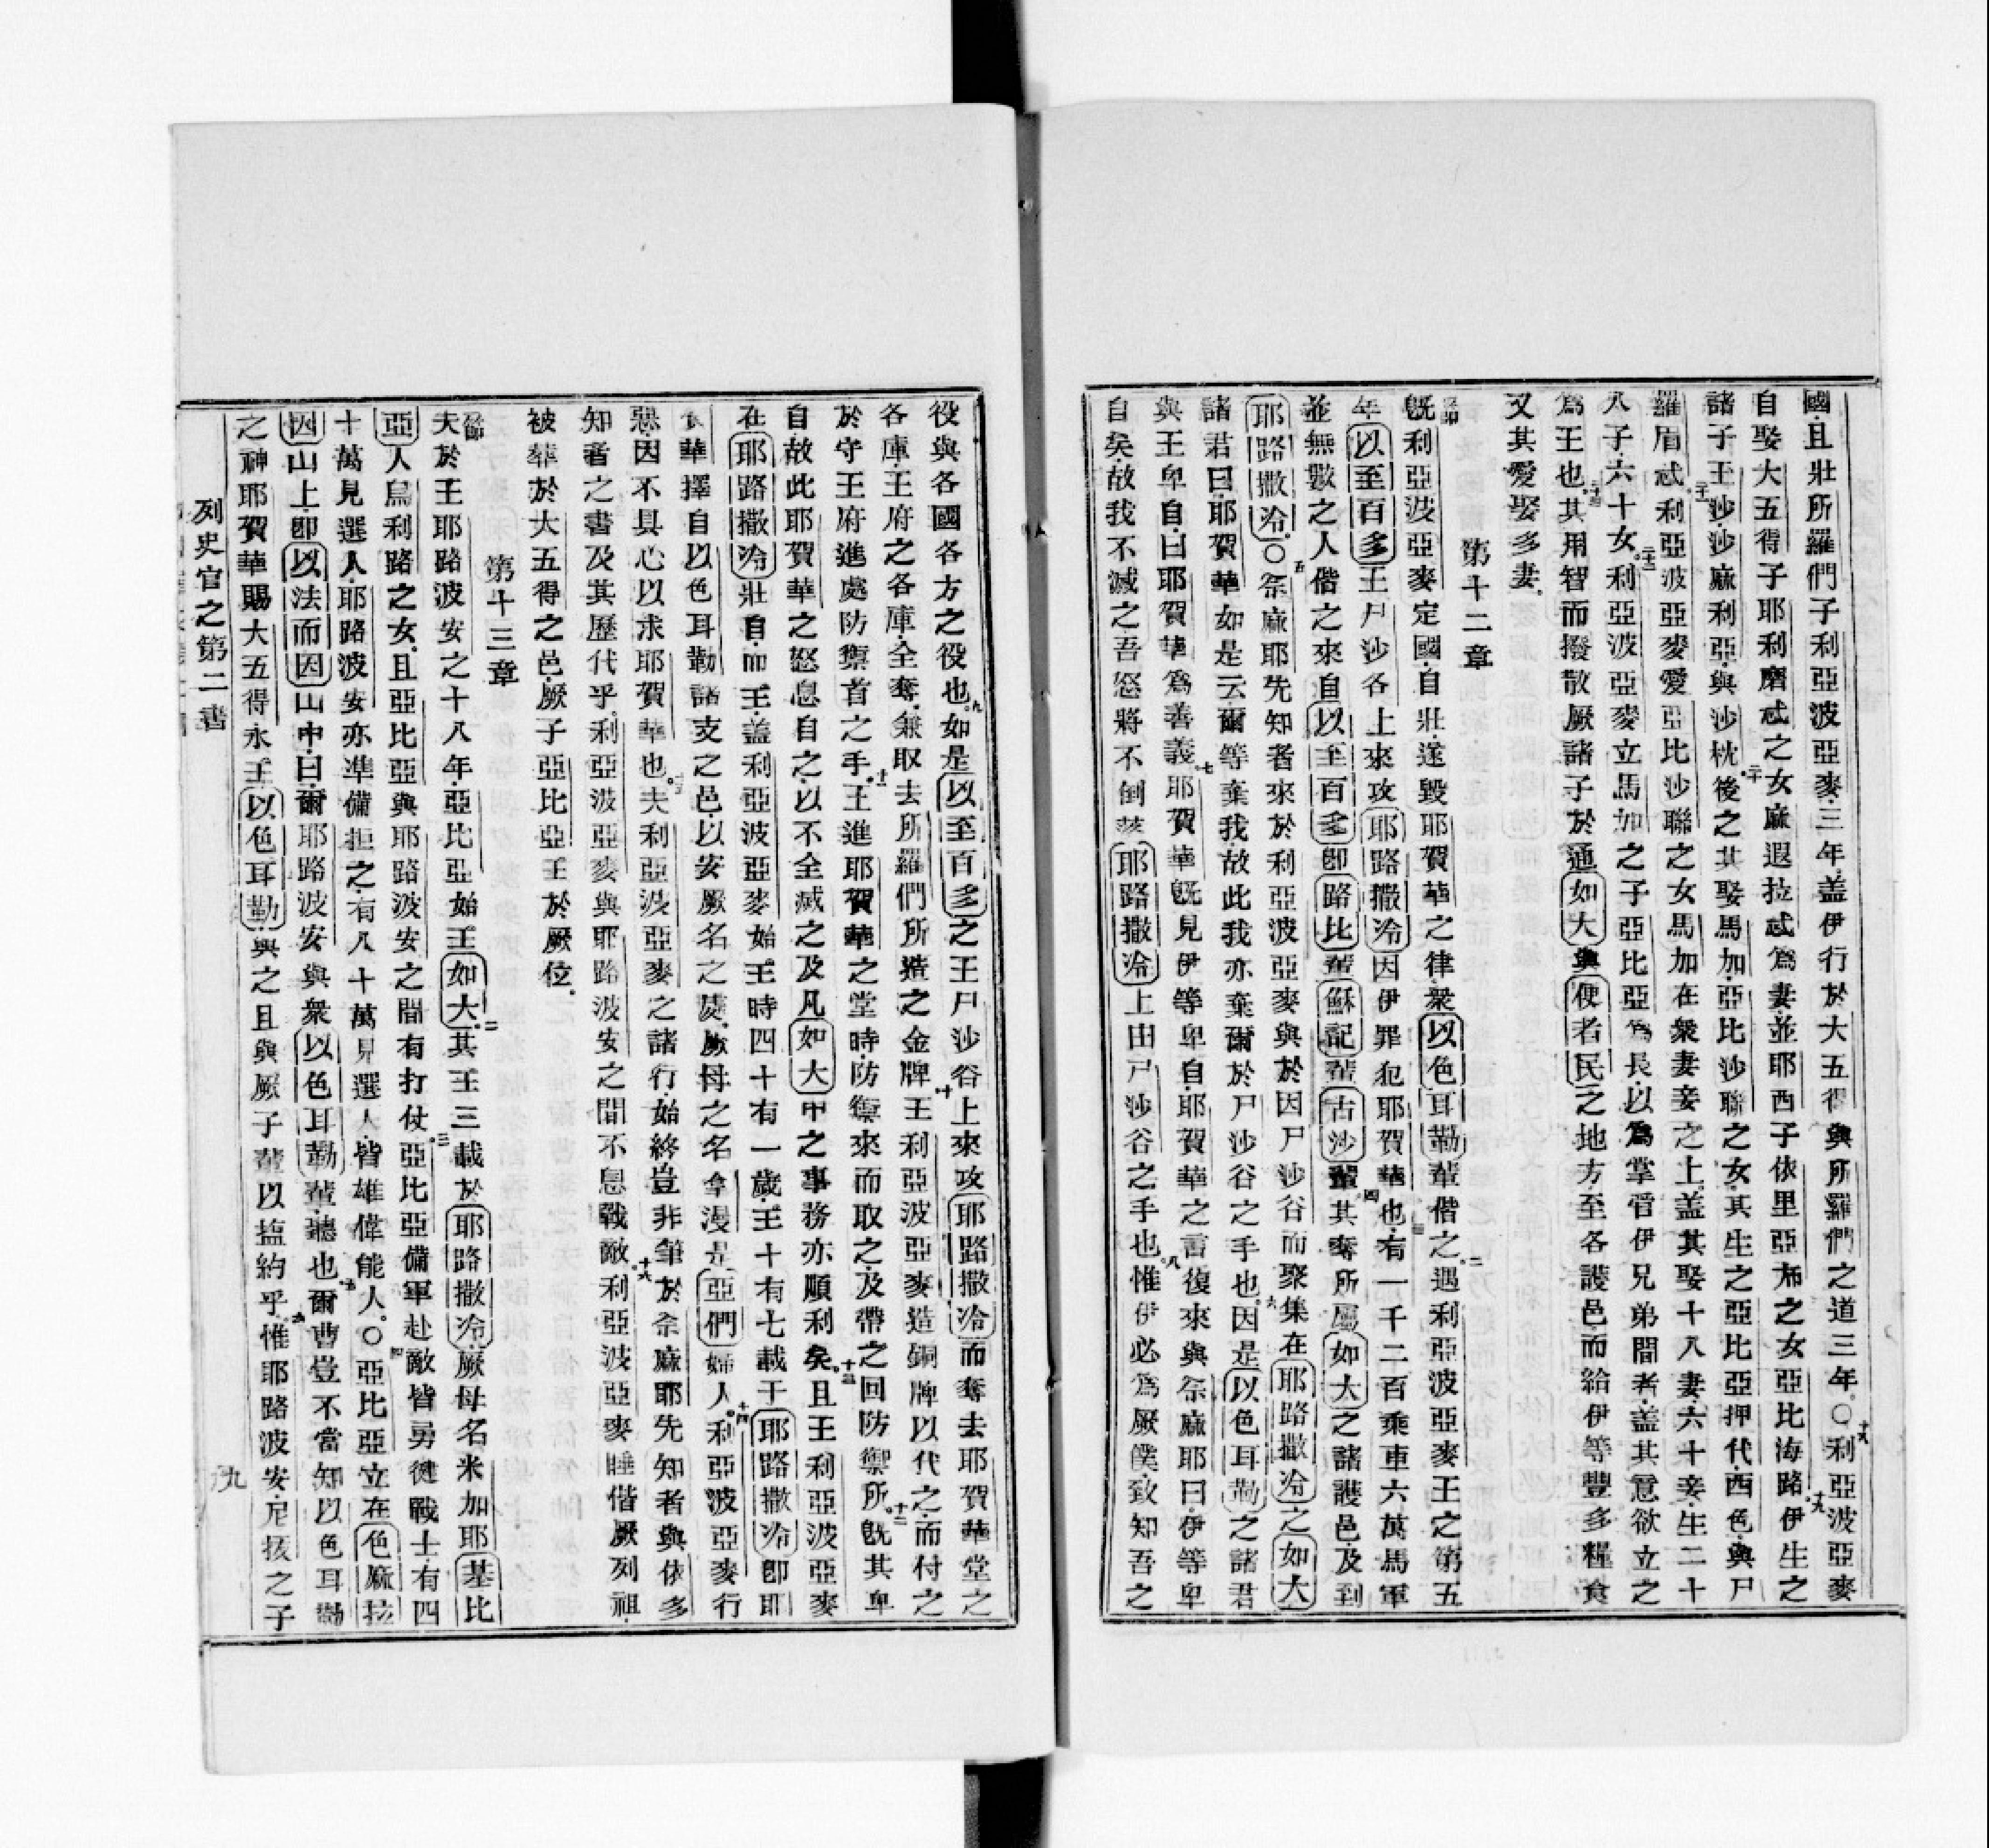 國且壯所羅們子利亞波亞麥三年盖伊行於大五得與所羅們之道三年○十八利亞波亞麥
自娶大五得子耶利磨忒之女麻遐拉忒爲妻並耶西子依里亞之女亞比海路十九伊生之
諸子王沙沙麻利亞與沙枕二十後之其娶馬加亞比沙聯之女其生之亞比亞押代西色與尸
羅眉忒二十一利亞波亞麥愛亞比沙聯之女馬加在衆妻妾之上盖其娶十八妻六十妾生二十
八子六十女二十二利亞波亞麥立馬加之子亞比亞爲長以爲掌管伊兄弟間者盖其意欲立之
爲王也二十三其用智而撥散厥諸子於通如大與便者民之地方至各護邑而給伊等豐多糧食
又其愛娶多妻
第十二章
一節既利亞波亞麥定國自壯遂毀耶賀華之律衆以色耳勒輩偕之二遇利亞波亞麥王之第五
年以至百多王尸沙各上來攻耶路撒冷因伊罪犯耶賀華也三有一千二百乘車六萬馬軍
並無數之人偕之來自以至百多卽路比輩蘇記輩古沙輩四其奪所屬如大之諸護邑及到
耶路撒冷○五佘麻耶先知者來於利亞波亞麥與於因尸沙谷而聚集在耶路撒冷之如大
諸君曰耶賀華如是云爾等棄我故此我亦棄爾於尸沙谷之手也六因是以色耳勒之諸君
與王卑自曰耶賀華爲善義七耶賀華既見伊等卑自耶賀華之言復來與佘麻耶曰伊等卑
自矣故我不滅之吾怒將不倒落耶路撒冷上由尸沙谷之手也八惟伊必爲厥僕致知吾之
役與各國各方之役也九如是以至百多之王尸沙谷上來攻耶路撒冷而奪去耶賀華堂之
各庫王府之各庫全奪兼取去所羅們所造之金牌十王利亞波亞麥造銅牌以代之而付之
於守王府進處防禦首之手十一王進耶賀華之堂時防禦來而取之及帶之回防禦所十二既其卑
自故此耶賀華之怒息自之以不全滅之及凡如大中之事務亦順利矣十三且王利亞波亞麥
在耶路撒冷壯自而王盖利亞波亞麥始王時四十有一歲王十有七載于耶路撒冷卽耶
賀華擇自以色耳勒諸支之邑以安厥名之處厥母之名拿漫是亞們婦人十四利亞波亞麥行
惡因不具心以求耶賀華也十五夫利亞波亞麥之諸行始終豈非筆於佘麻耶先知者與依多
知者之書及其歷代乎利亞波亞麥與耶路波安之間不息戰敵十六利亞波亞麥睡偕厥列祖
被葬於大五得之邑厥子亞比亞王於厥位
第十三章
一節夫於王耶路波安之十八年亞比亞始王如大二其王三載於耶路撒冷厥母名米加耶基比
亞人烏利路之女且亞比亞與耶路波安之間有打仗三亞比亞備軍赴敵皆勇健戰士有四
十萬見選人耶路波安亦準備拒之有八十萬見選人皆雄偉能人○四亞比亞立在色麻拉
因山上卽以法而因山中曰爾耶路波安與衆以色耳勒輩聽也五爾曹豈不當知以色耳勒
之神耶賀華賜大五得永王以色耳勒與之且與厥子輩以鹽約乎六惟耶路波安尼拔之子
列史官之第二書
九